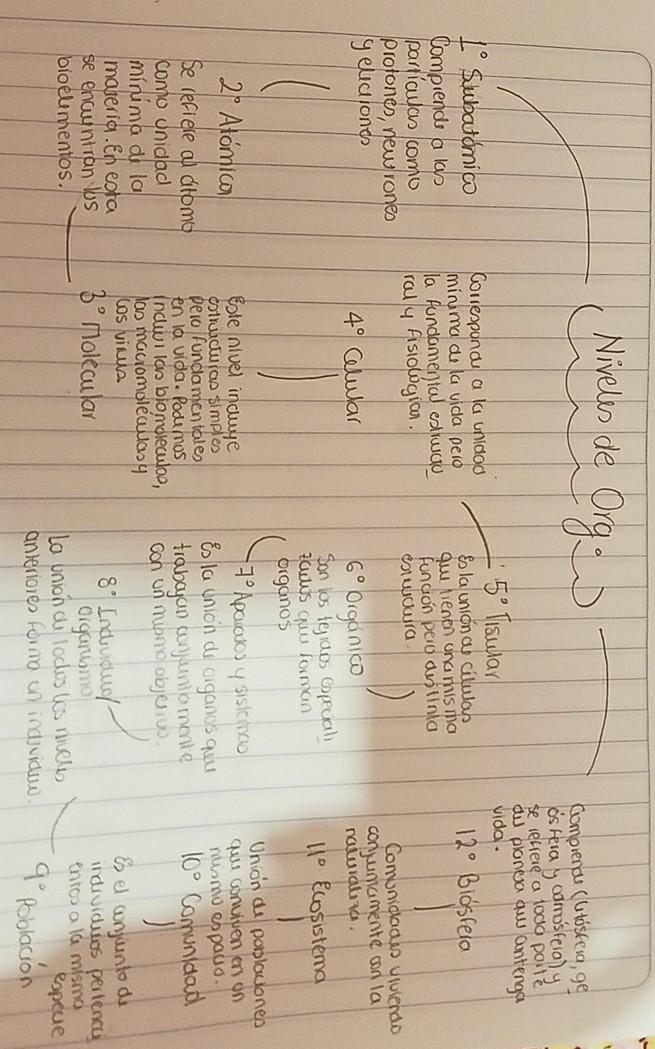 Niveles de Org.
1° Subatómico
Comprende a las
partículas como
protones, neutrones
y electrones
2° Atómico
Se refiere al átomo
como unidad
mínima de la
materia. En esta
se encuentran los
bioelementos.
3° Molecular
Este nivel incluye
estructuras simples
pero fundamentales
en la vida. Podemos
incluir las biomoléculas,
las macromoléculas y
los virus
4° Celular
Corresponde a la unidad
mínima de la vida pero
la fundamental estructu
ral y fisiológica.
5° Tisular
Es la unión de células
que tienen una misma
función pero distinta
estructura.
6° Orgánico
Son los tejidos especiali
zados que forman
órganos
7° Aparatos y sistemas
Es la unión de órganos que
trabajan conjuntamente
con un mismo objetivo.
8° Individuo/
organismo
La unión de todos los niveles
anteriores forma un individuo.
9° Población
Es el conjunto de
individuos pertenci
entes a la misma
especie
10° Comunidad
Unión de poblaciones
que conviven en un
mismo espacio.
11° Ecosistema
Comunidades viviendo
conjuntamente con la
naturaleza.
12° Biósfera
Comprende (litósfera, ge
ósfera y atmósfera) y
se refiere a toda parte
du planeta que contenga
vida.